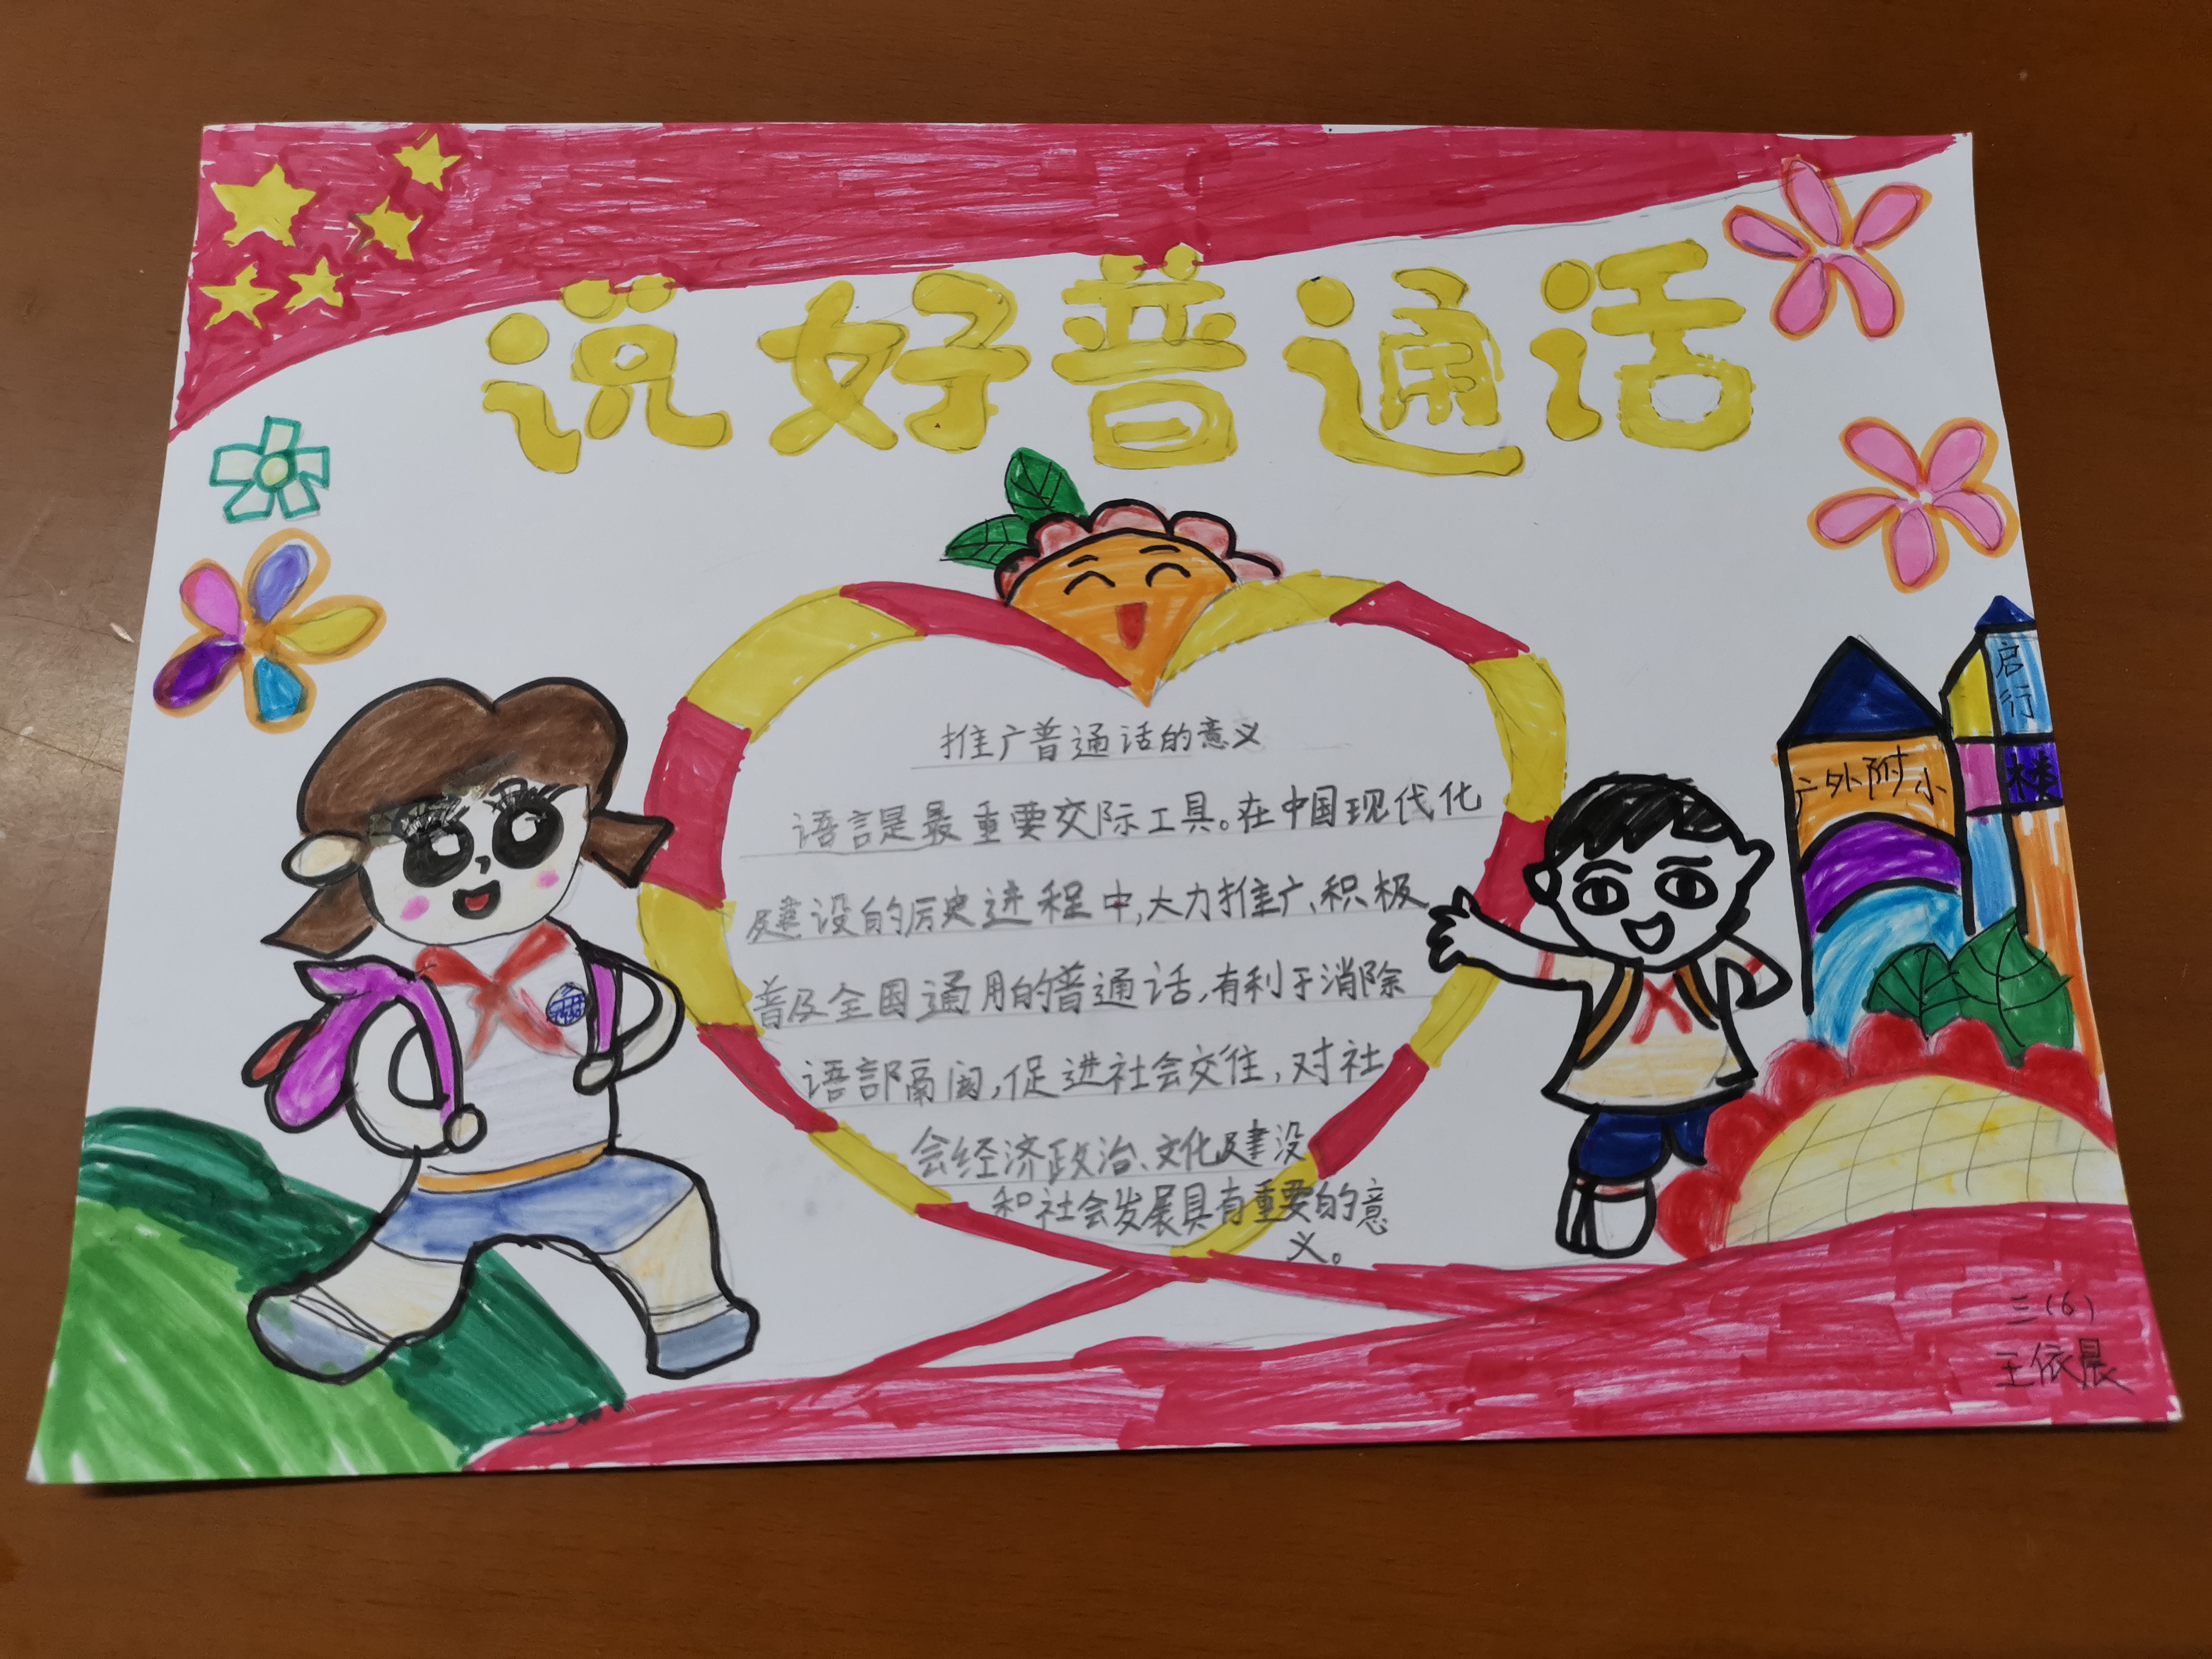 说好普通话
推广普通话的意义
语言是最重要交际工具。在中国现代化
建设的历史进程中,大力推广、积极
普及全国通用的普通话,有利于消除
语言隔阂,促进社会交往,对社
会经济政治、文化建设
和社会发展具有重要的意
义。
启
行
楼
广外附小
三(6)
王依晨